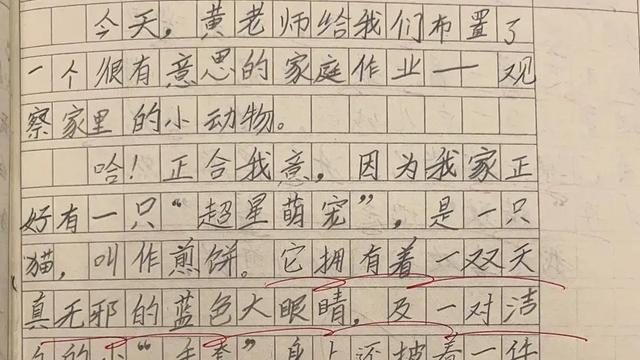 今天，黄老师给我们布置了
一个很有意思的家庭作业——观
察家里的小动物。
哈！正合我意，因为我家正
好有一只“超星萌宠”，是一只
猫，叫作煎饼。它拥有着一双天
真无邪的蓝色大眼睛，及一对洁
白的小“手套”身上还披着一件